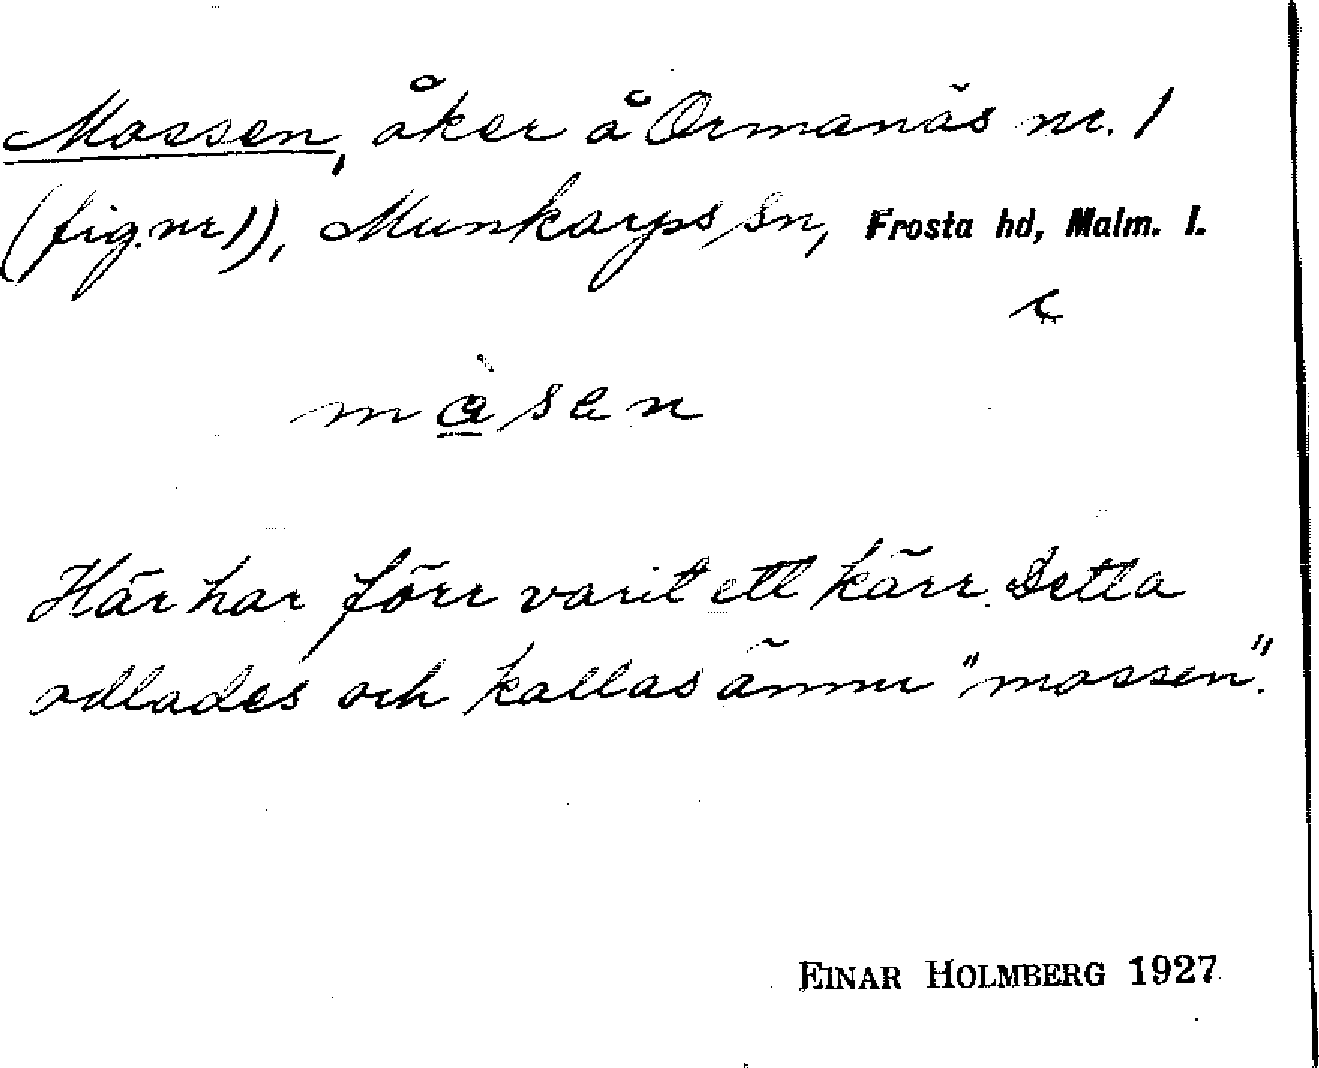 Mossen, åker å Ormanäs nr. 1
(fig. nr 1), Munkarps sn, Frosta hd, Malm. l.
Här har förr varit ett kärr. Detta
odlades och kallas ännu "mossen".
EINAR HOLMBERG 1927